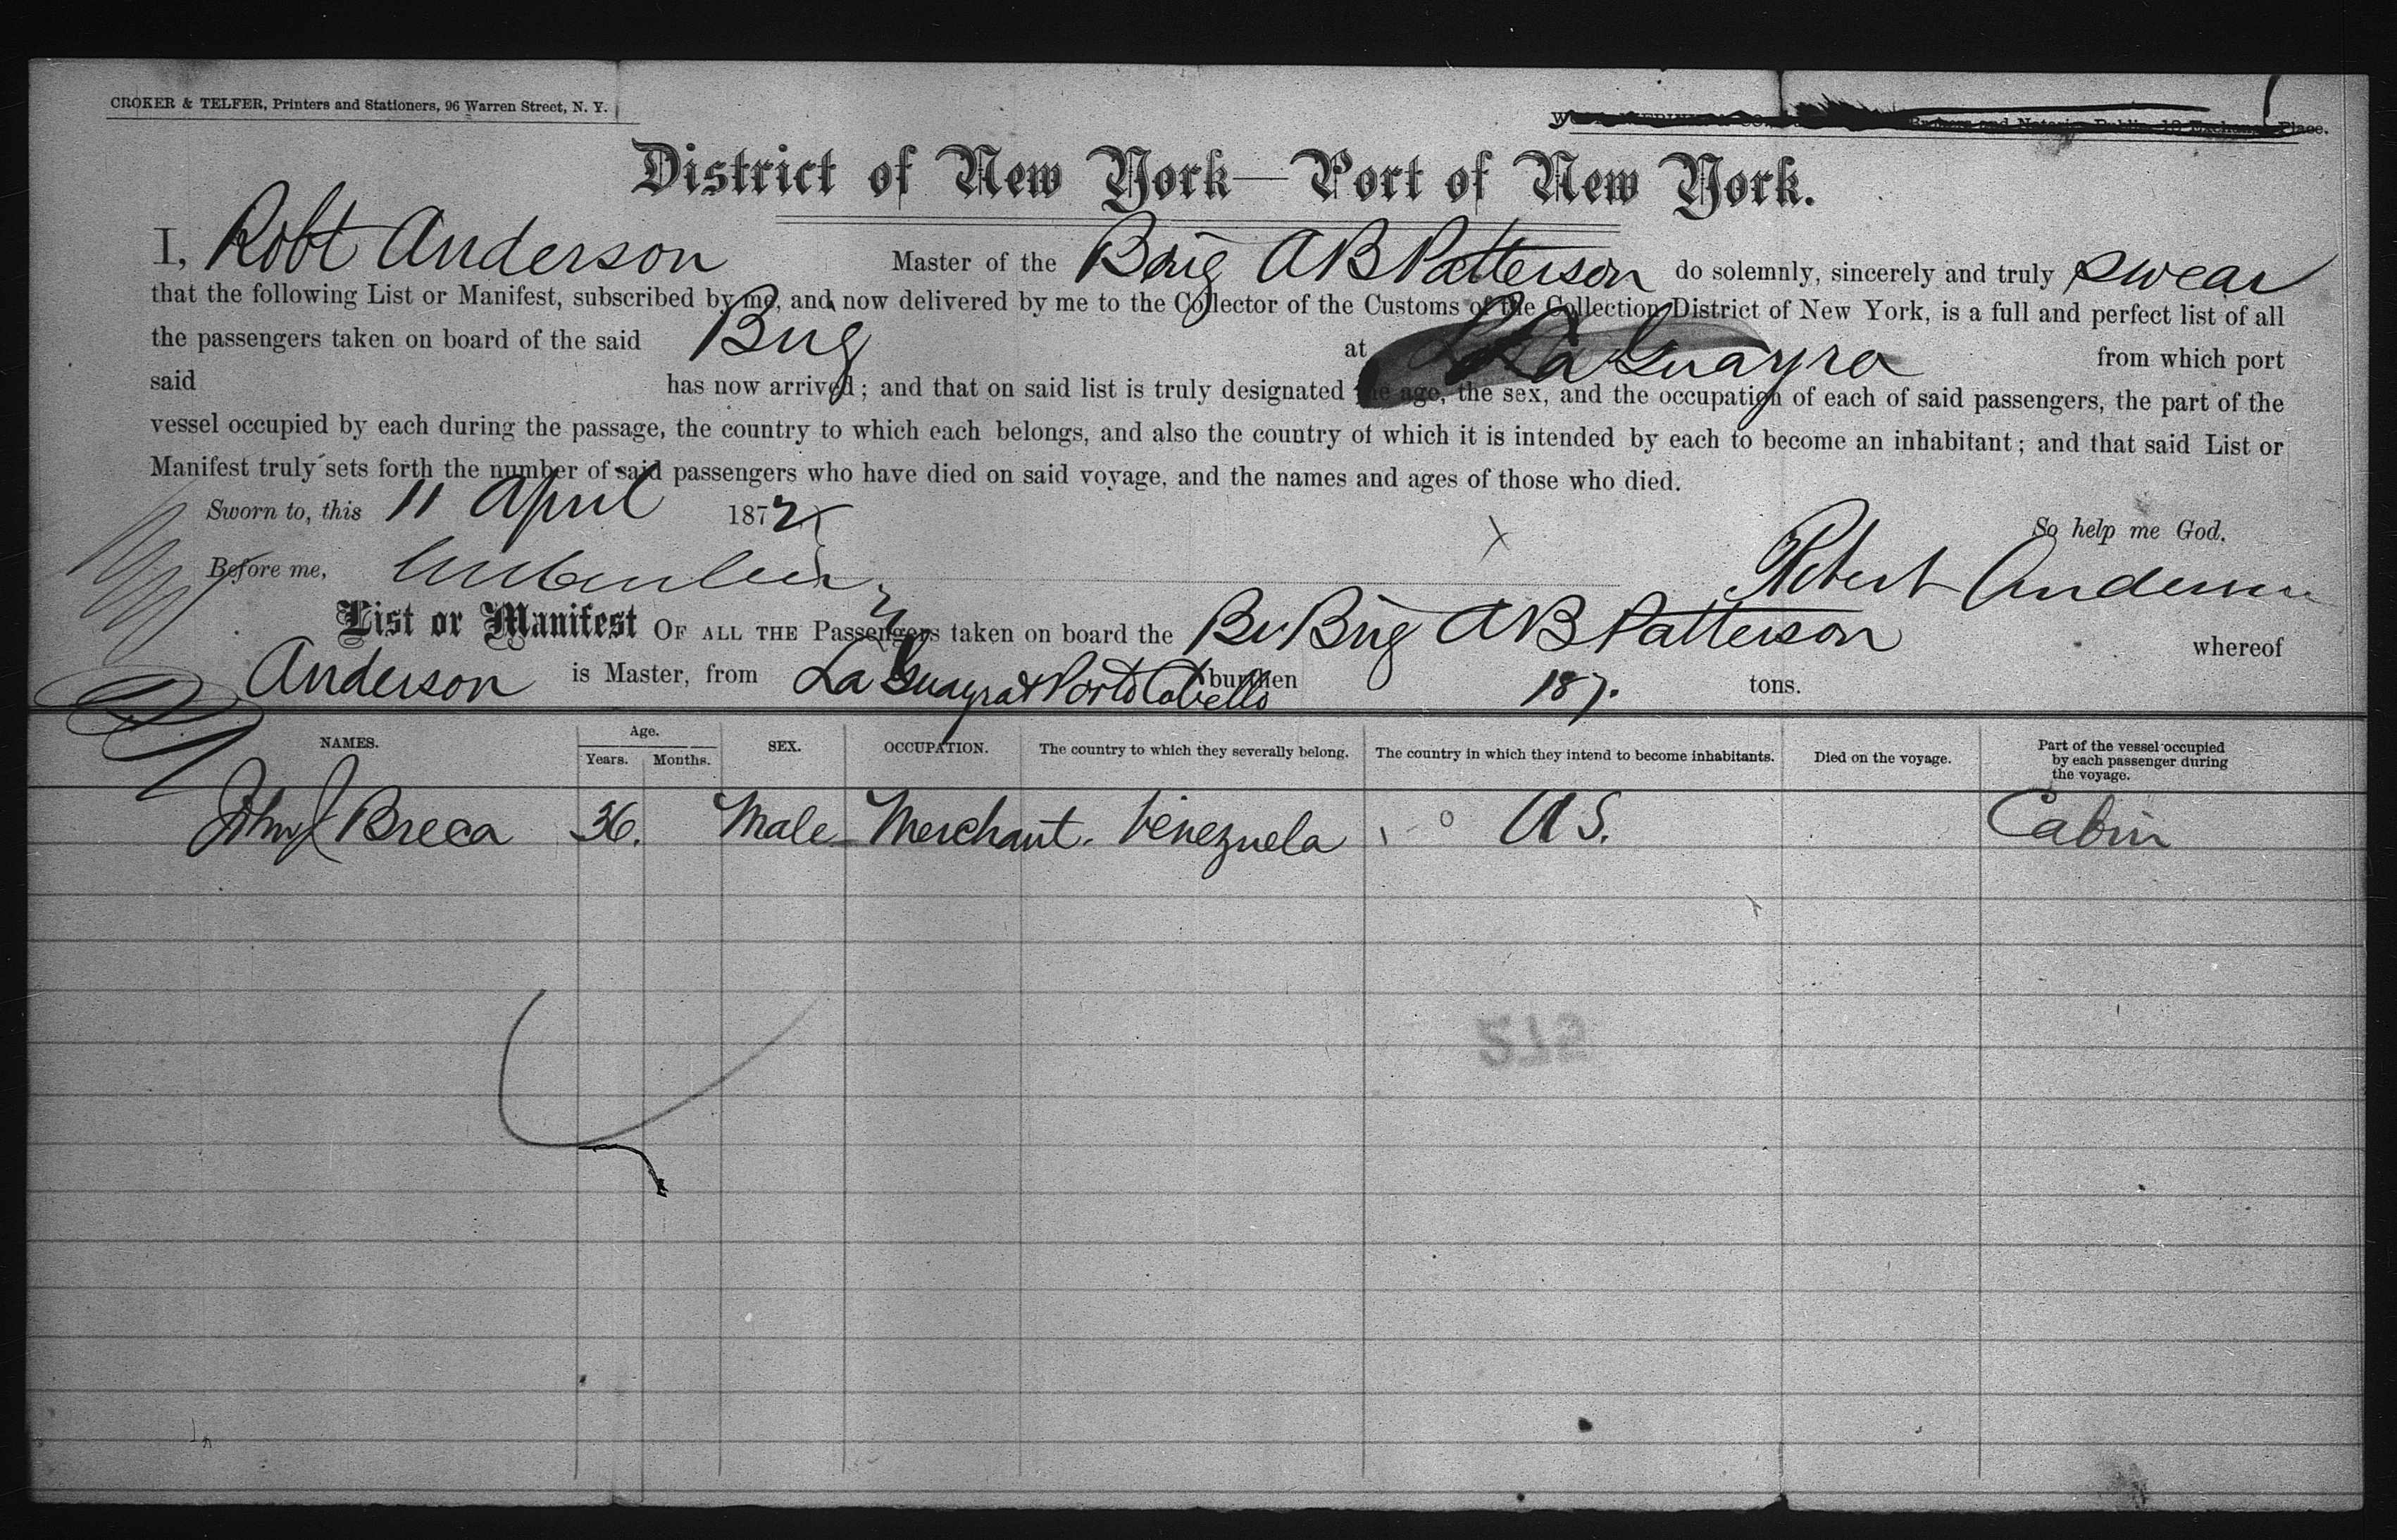 CROKER & TELFER, Printers and Stationers, 96 Warren Street, N. Y.
Brokers and Notaries Public, 19 Exchange Place.
District of New York—Port of New York.
I, Robt Anderson Master of the Brig A B Patterson do solemnly, sincerely and truly swear
that the following List or Manifest, subscribed by me, and now delivered by me to the Collector of the Customs of the Collection District of New York, is a full and perfect list of all
the passengers taken on board of the said Brig at La Guayra from which port
said has now arrived; and that on said list is truly designated the age, the sex, and the occupation of each of said passengers, the part of the
vessel occupied by each during the passage, the country to which each belongs, and also the country of which it is intended by each to become an inhabitant; and that said List or
Manifest truly sets forth the number of said passengers who have died on said voyage, and the names and ages of those who died.
Sworn to, this 11 April 1872 So help me God.
Before me, Robert Anderson
List or Manifest OF ALL THE Passengers taken on board the Br Brig A B Patterson whereof
Anderson is Master, from La Guayra & Porto Cabello burthen 187. tons.
NAMES. Age. Years. Months. SEX. OCCUPATION. The country to which they severally belong. The country in which they intend to become inhabitants. Died on the voyage. Part of the vessel occupied by each passenger during the voyage.
John J Breca 36. Male Merchant. Venezuela U S. Cabin
512